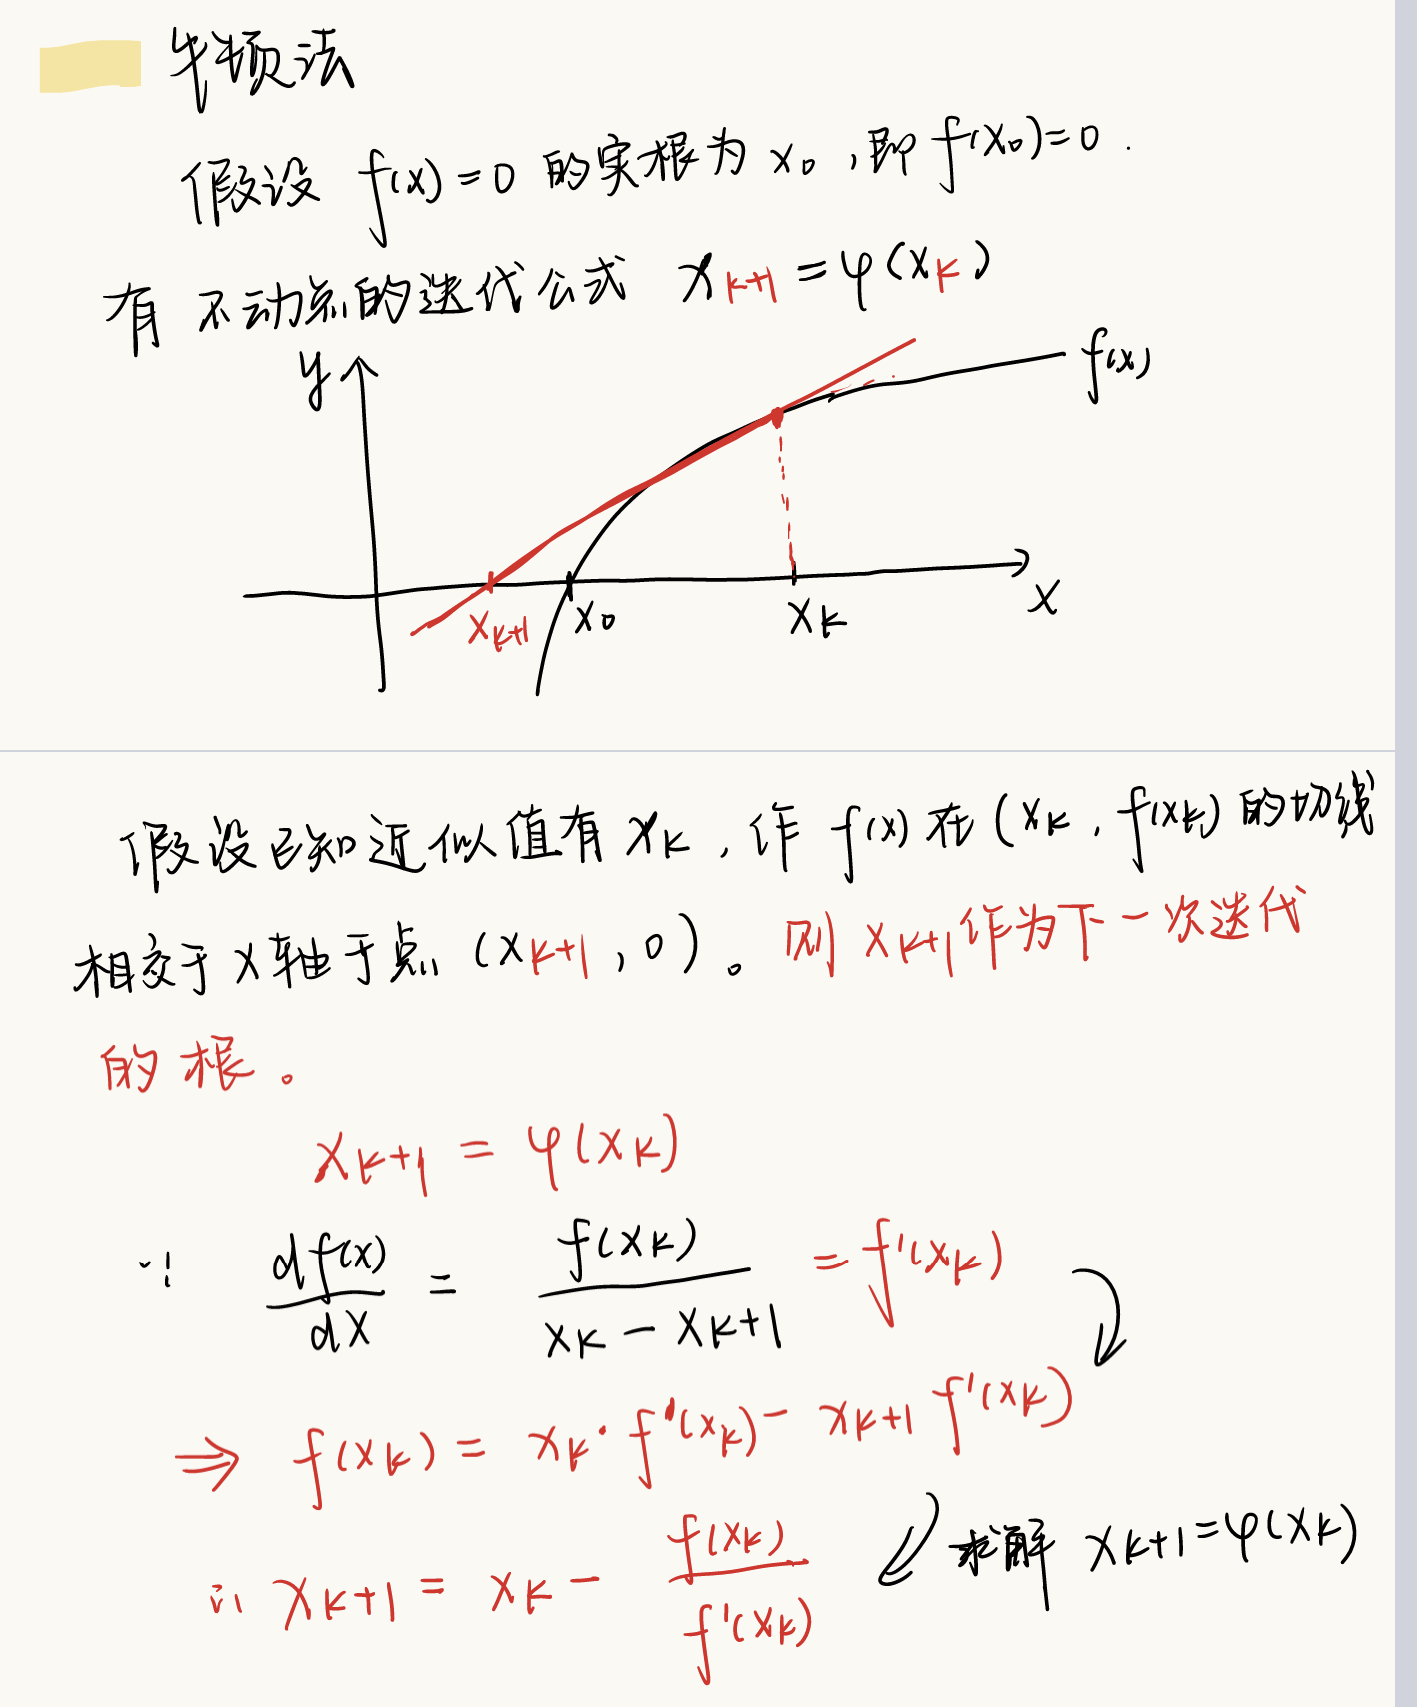 牛顿法
假设 f(x)=0 的实根为 x₀，即 f(x₀)=0.
有 不动点的迭代公式 x_{k+1}=φ(x_k)
y
f(x)
x_{k+1} x₀ x_k x
假设已知近似值有 x_k，作 f(x) 在 (x_k, f(x_k) 的切线
相交于 x 轴于点 (x_{k+1}, 0)。则 x_{k+1} 作为下一次迭代
的根。
x_{k+1} = φ(x_k)
∵ df(x)/dx = f(x_k)/(x_k - x_{k+1}) = f'(x_k)
⇒ f(x_k) = x_k·f'(x_k) - x_{k+1} f'(x_k)
∴ x_{k+1} = x_k - f(x_k)/f'(x_k) 求解 x_{k+1}=φ(x_k)